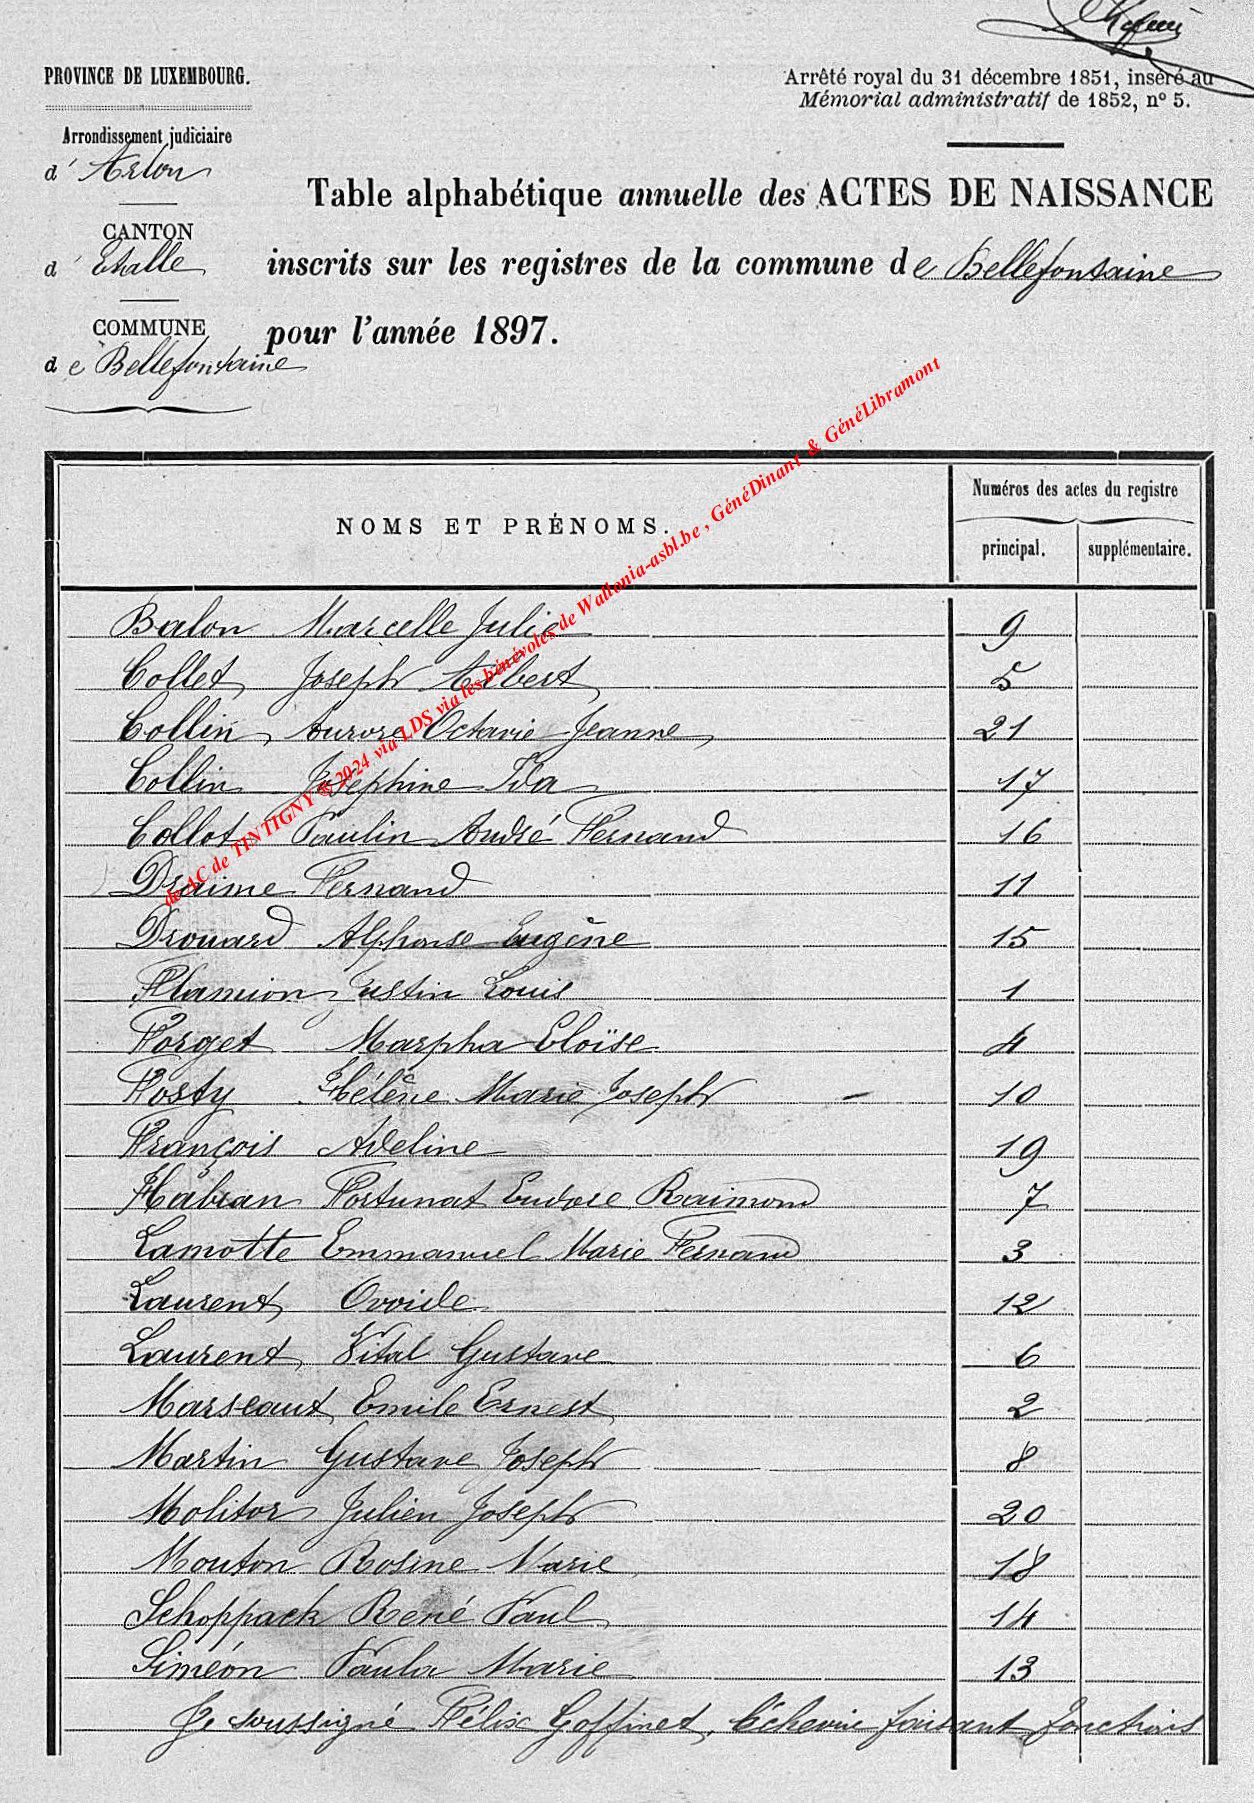 PROVINCE DE LUXEMBOURG.
Arrêté royal du 31 décembre 1851, inséré au
Mémorial administratif de 1852, n° 5.
Arrondissement judiciaire
d' Arlon
CANTON
d' Etalle
COMMUNE
de Bellefontaine
Table alphabétique annuelle des ACTES DE NAISSANCE
inscrits sur les registres de la commune de Bellefontaine
pour l'année 1897.
de AC de TINTIGNY © 2024 via LDS via les bénévoles de Wallonia-asbl.be , GénéDinant & GénéLibramont
NOMS ET PRÉNOMS.
Numéros des actes du registre
principal. supplémentaire.
Balon Marcelle Julie 9
Collet Joseph Albert 5
Collin Aurore Octavie Jeanne 21
Collin Joséphine Ida 17
Collot Paulin André Fernand 16
Draime Fernand 11
Drouard Alphonse Eugène 15
Flamion Justin Louis 1
Forget Marpha Eloïse 4
Fosty Hélène Marie Joseph 10
François Adeline 19
Habran Fortunat Eudore Raimond 7
Lamotte Emmanuel Marie Fernand 3
Laurent Ovoide 12
Laurent Vital Gustave 6
Marseaut Emile Ernest 2
Martin Gustave Joseph 8
Molitor Julien Joseph 20
Mouton Rosine Marie 18
Schoppack René Paul 14
Siméon Paula Marie 13
Je soussigné Félix Goffinet, Echevin faisant fonctions